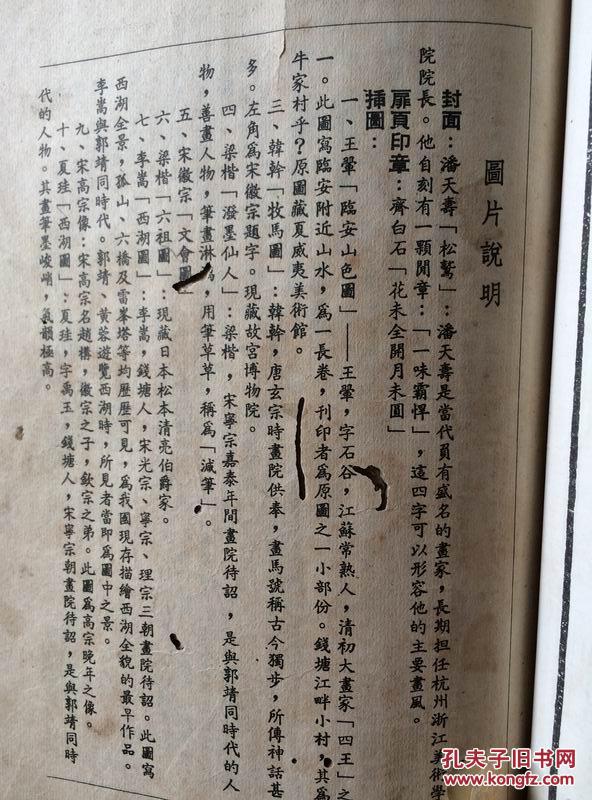 圖片說明
封面：潘天壽「松鷲」：潘天壽是當代負有盛名的畫家，長期担任杭州浙江美術學
院院長。他自刻有一顆閒章：「一味霸悍」，這四字可以形容他的主要畫風。
扉頁印章：齊白石「花未全開月未圓」
插圖：
一、王翬「臨安山色圖」——王翬，字石谷，江蘇常熟人，清初大畫家「四王」之
一。此圖寫臨安附近山水，爲一長卷，刊印者爲原圖之一小部份。錢塘江畔小村，其爲
牛家村乎？原圖藏夏威夷美術館。
三、韓幹「牧馬圖」：韓幹，唐玄宗時畫院供奉，畫馬號稱古今獨步，所傳神話甚
多。左角爲宋徽宗題字。現藏故宮博物院。
四、梁楷「潑墨仙人」：梁楷，宋寧宗嘉泰年間畫院待詔，是與郭靖同時代的人
物，善畫人物，筆畫淋，用筆草草，稱爲「減筆」。
五、宋徽宗「文會圖」
六、梁楷「六祖圖」：現藏日本松本清亮伯爵家。
七、李嵩「西湖圖」：李嵩，錢塘人，宋光宗、寧宗、理宗三朝畫院待詔。此圖寫
西湖全景，孤山、六橋及雷峯塔等均歷歷可見，爲我國現存描繪西湖全貌的最早作品。
李嵩與郭靖同時代。郭靖、黃蓉遊覽西湖時，所見者當即爲圖中之景。
九、宋高宗像：宋高宗名趙構，徽宗之子，欽宗之弟。此圖爲高宗晚年之像。
十、夏珪「西湖圖」：夏珪，字禹玉，錢塘人，宋寧宗朝畫院待詔，是與郭靖同時
代的人物。其畫筆墨峻峭，氣韻極高。
孔夫子旧书网
www.kongfz.com